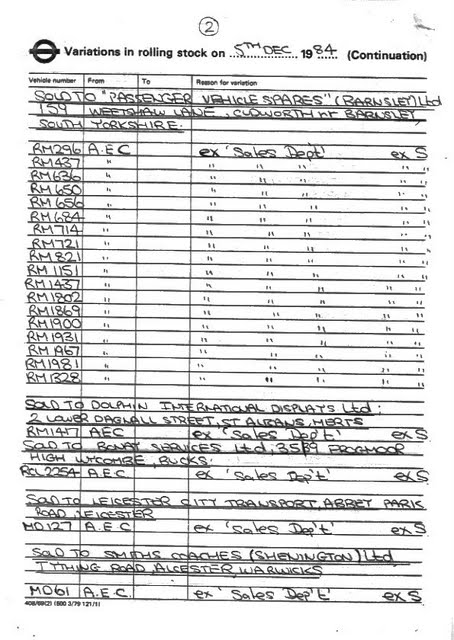 2
Variations in rolling stock on 5TH DEC 1984 (Continuation)
Vehicle number From To Reason for variation
SOLD TO "PASSENGER VEHICLE SPARES" (BARNSLEY) Ltd
159 WEETSHAW LANE, CUDWORTH nr BARNSLEY,
SOUTH YORKSHIRE.
RM296 A.E.C ex 'Sales Dep't' ex S
RM437 " " " " "
RM636 " " " " "
RM650 " " " " "
RM656 " " " " "
RM684 " " " " "
RM714 " " " " "
RM721 " " " " "
RM821 " " " " "
RM1151 " " " " "
RM1437 " " " " "
RM1802 " " " " "
RM1869 " " " " "
RM1900 " " " " "
RM1931 " " " " "
RM " " " " "
RM1981 " " " " "
RM1328 " " " " "
SOLD TO DOLPHIN INTERNATIONAL DISPLAYS Ltd:
2 LOWER DAGNALL STREET, ST ALBANS, HERTS
RM1477 AEC ex 'Sales Dep't' ex S
SOLD TO SERVICES Ltd; FROGMOOR
HIGH WYCOMBE, BUCKS.
RCL2254 A.E.C ex 'Sales Dep't' ex S
SOLD TO LEICESTER CITY TRANSPORT, ABBEY PARK
ROAD, LEICESTER
MD127 A.E.C ex 'Sales Dep't' ex S
SOLD TO SMITHS COACHES (SHENINGTON) Ltd
TYTHING ROAD, ALCESTER, WARWICKS
MD61 A.E.C. ex 'Sales Dep't' ex S
408/69(2) (800 3/79 121/1)